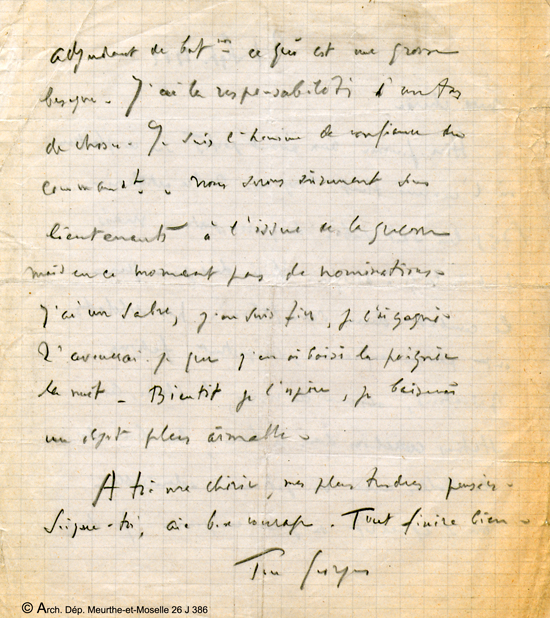 adjudant de bat^on ce qui est une grosse
besogne. J'ai la responsabilité d'un tas
de choses. Je suis l'homme de confiance du
commandt. Nous serons sûrement sous
lieutenants à l'issue de la guerre
mais en ce moment pas de nominations.
J'ai un sabre, j'en suis fier, je l'ai gagné.
T'avouerai je que j'en ai baisé la poignée
la nuit - Bientôt je l'espère, je baiserai
un objet plus aimable.
A toi ma chérie, mes plus tendres pensées.
Soigne-toi, aie bon courage. Tout finira bien.
Ton Georges
© Arch. Dép. Meurthe-et-Moselle 26 J 386